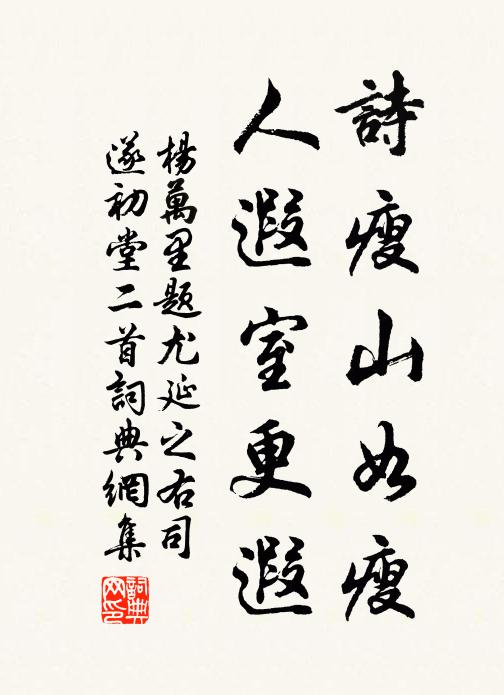 詩瘦山如瘦
人遐室更遐
楊萬里題尤延之右司
遂初堂二首詞典網集
詞典網印